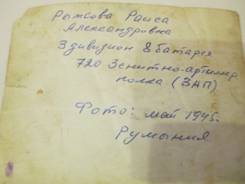 Рыжова Раиса
Александровна
3 дивизион 8 батарея
720 Зенитно-артиллер
полка (ЗАП)
Фото: май 1945.
Румыния